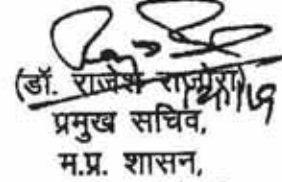 (डॉ. राजेश राजौरा)
प्रमुख सचिव,
म.प्र. शासन,